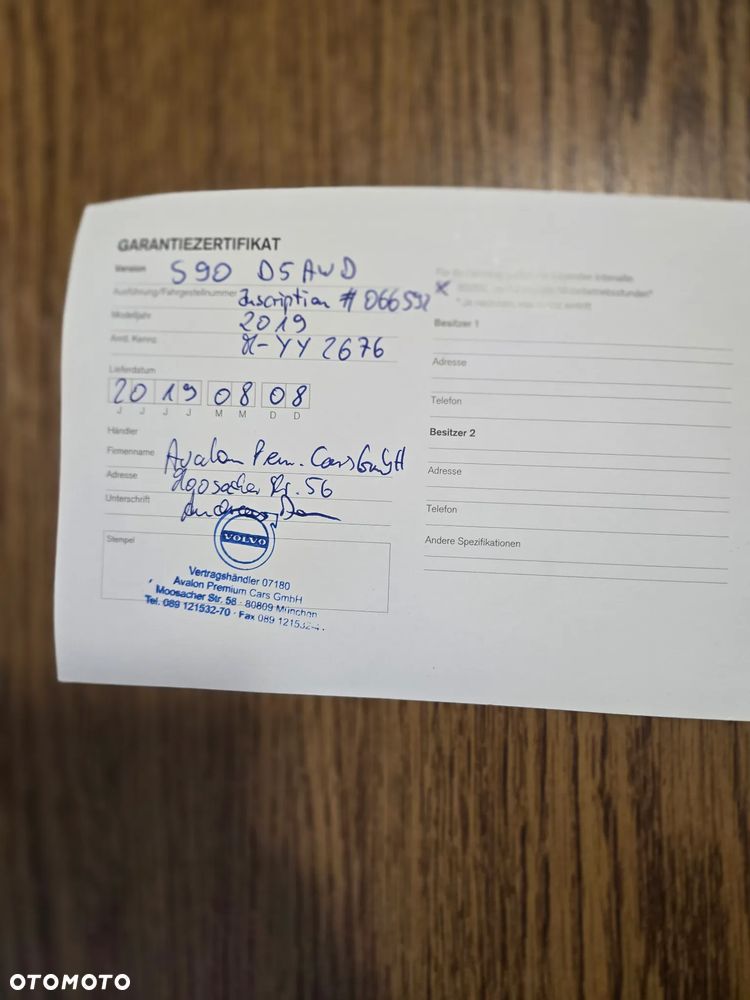 GARANTIEZERTIFIKAT
Version S90 D5 AWD
Ausführung/Fahrgestellnummer Inscription # 066592
Modelljahr 2019
Amtl. Kennz. YY 2676
Lieferdatum
2019 08 08
J J J J M M D D
Händler
Firmenname Avalon Prem. Cars GmbH
Adresse Moosacher Str. 56
Unterschrift Andreas
Stempel
VOLVO
Vertragshändler 07180
Avalon Premium Cars GmbH
Moosacher Str. 58 · 80809 München
Tel. 089 121532-70 · Fax 089 121532-
Besitzer 1
Adresse
Telefon
Besitzer 2
Adresse
Telefon
Andere Spezifikationen
OTOMOTO